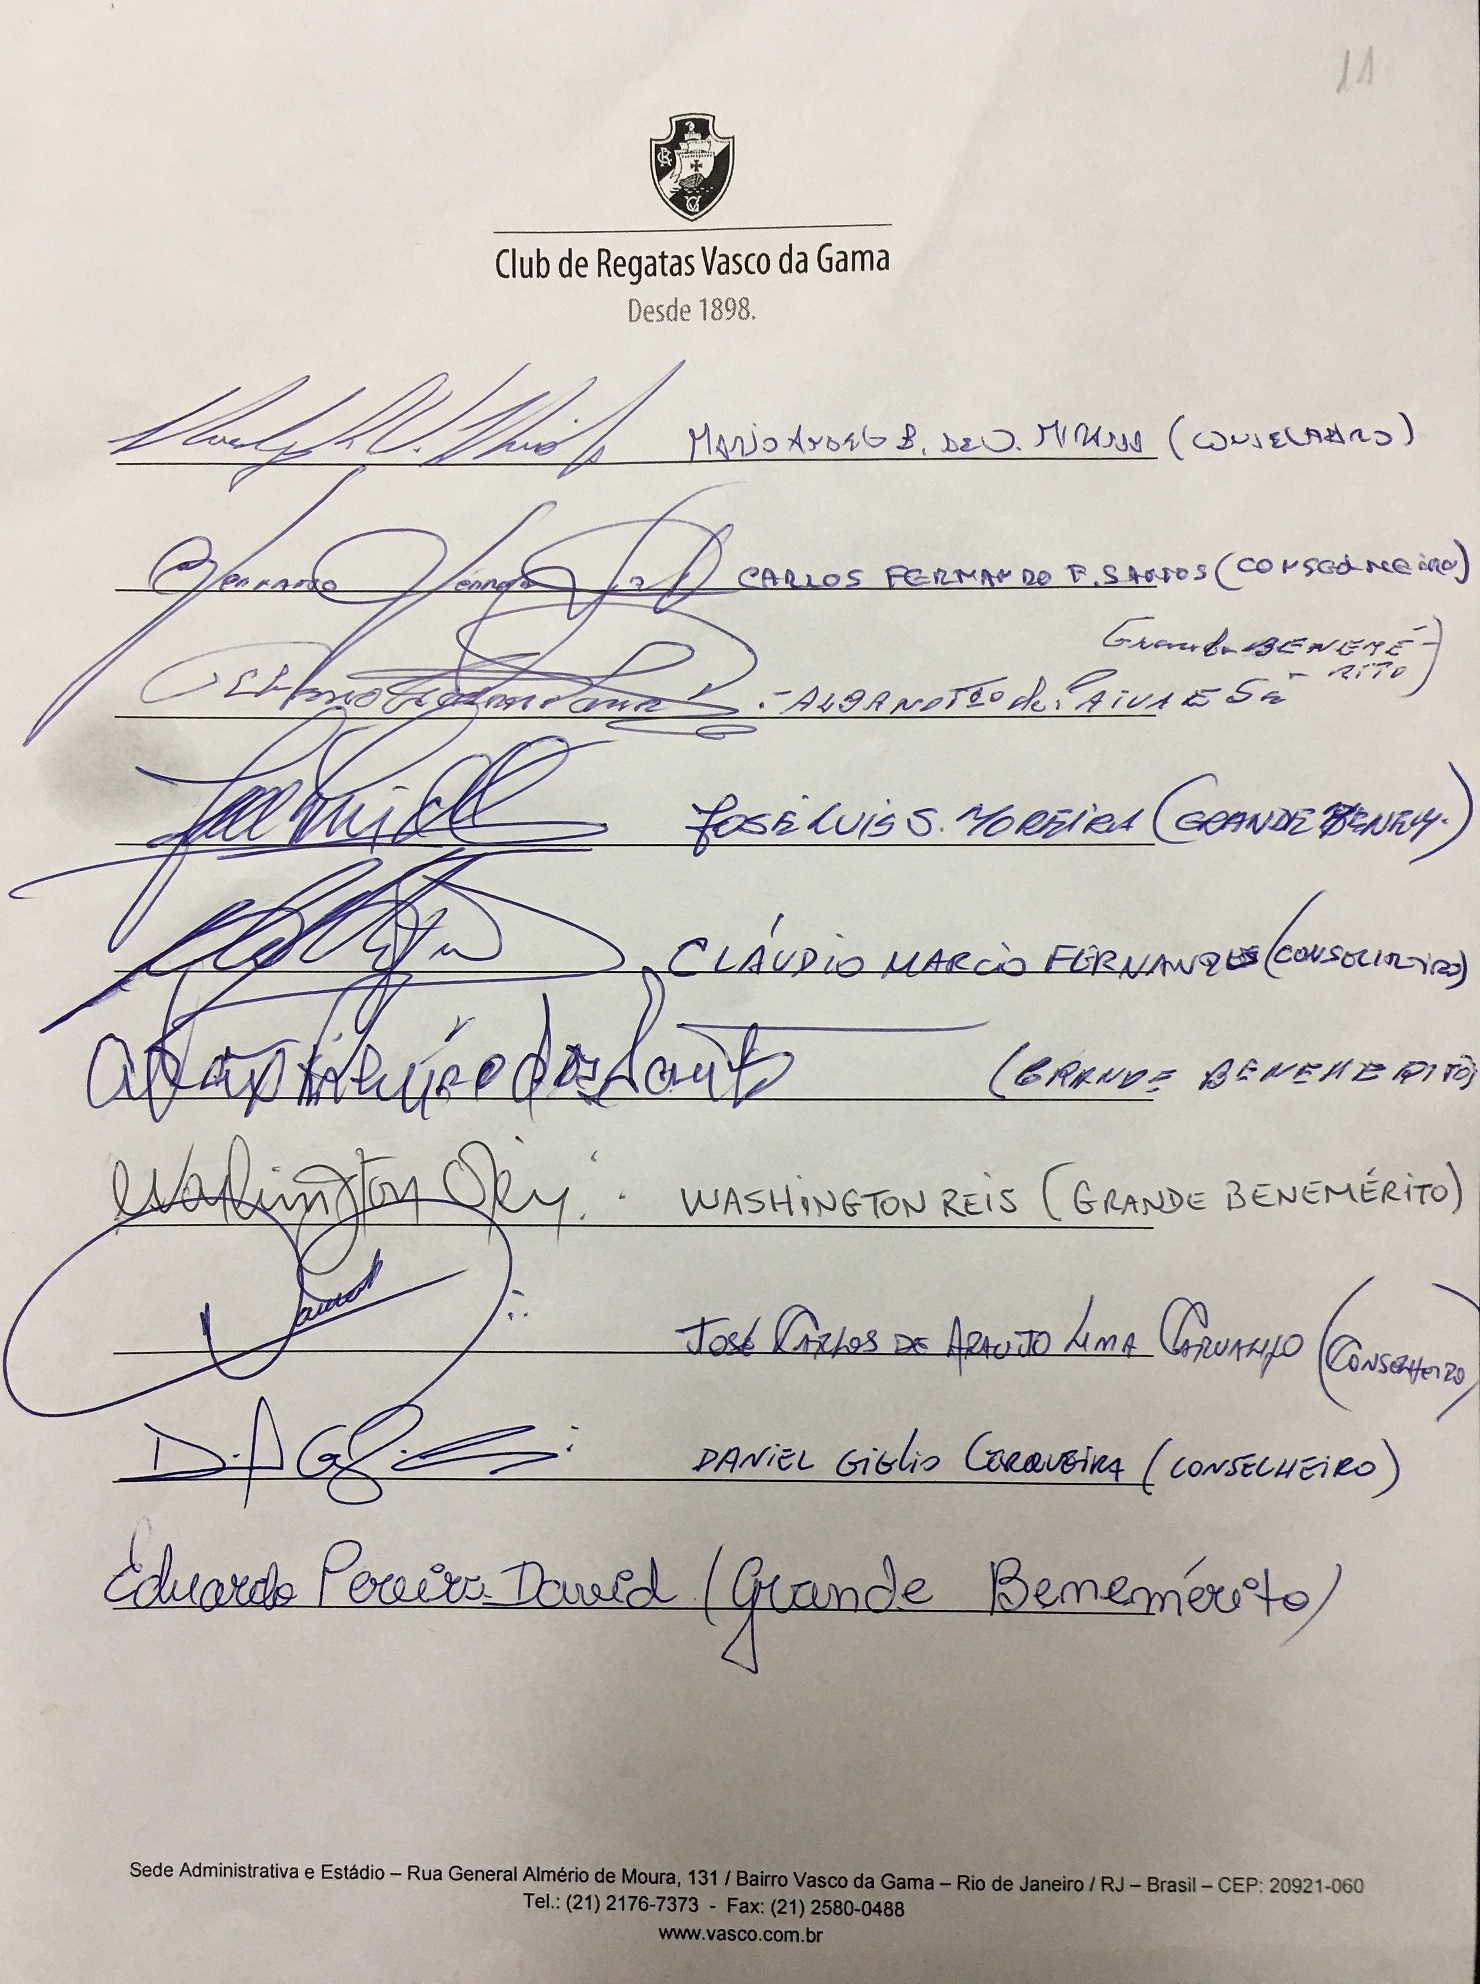 11
Club de Regatas Vasco da Gama
Desde 1898.
B. DE (CONSELHEIRO)
CARLOS FERNANDO F. SANTOS (CONSELHEIRO)
Grande BENEMÉ-
RITO)
PAIVA E Sá
JOSÉ LUIS S. MOREIRA (GRANDE BENEM.)
CLÁUDIO MARCIO FERNANDES (CONSELHEIRO)
dos Santos (GRANDE BENEMERITO)
Washington Reis: WASHINGTON REIS (GRANDE BENEMÉRITO)
JOSÉ CARLOS DE ARAUJO LIMA CARVALHO (CONSELHEIRO)
DANIEL GIGLIO CERQUEIRA (CONSELHEIRO)
Eduardo Pereira David (Grande Benemérito)
Sede Administrativa e Estádio – Rua General Almério de Moura, 131 / Bairro Vasco da Gama – Rio de Janeiro / RJ – Brasil – CEP: 20921-060
Tel.: (21) 2176-7373 - Fax: (21) 2580-0488
www.vasco.com.br